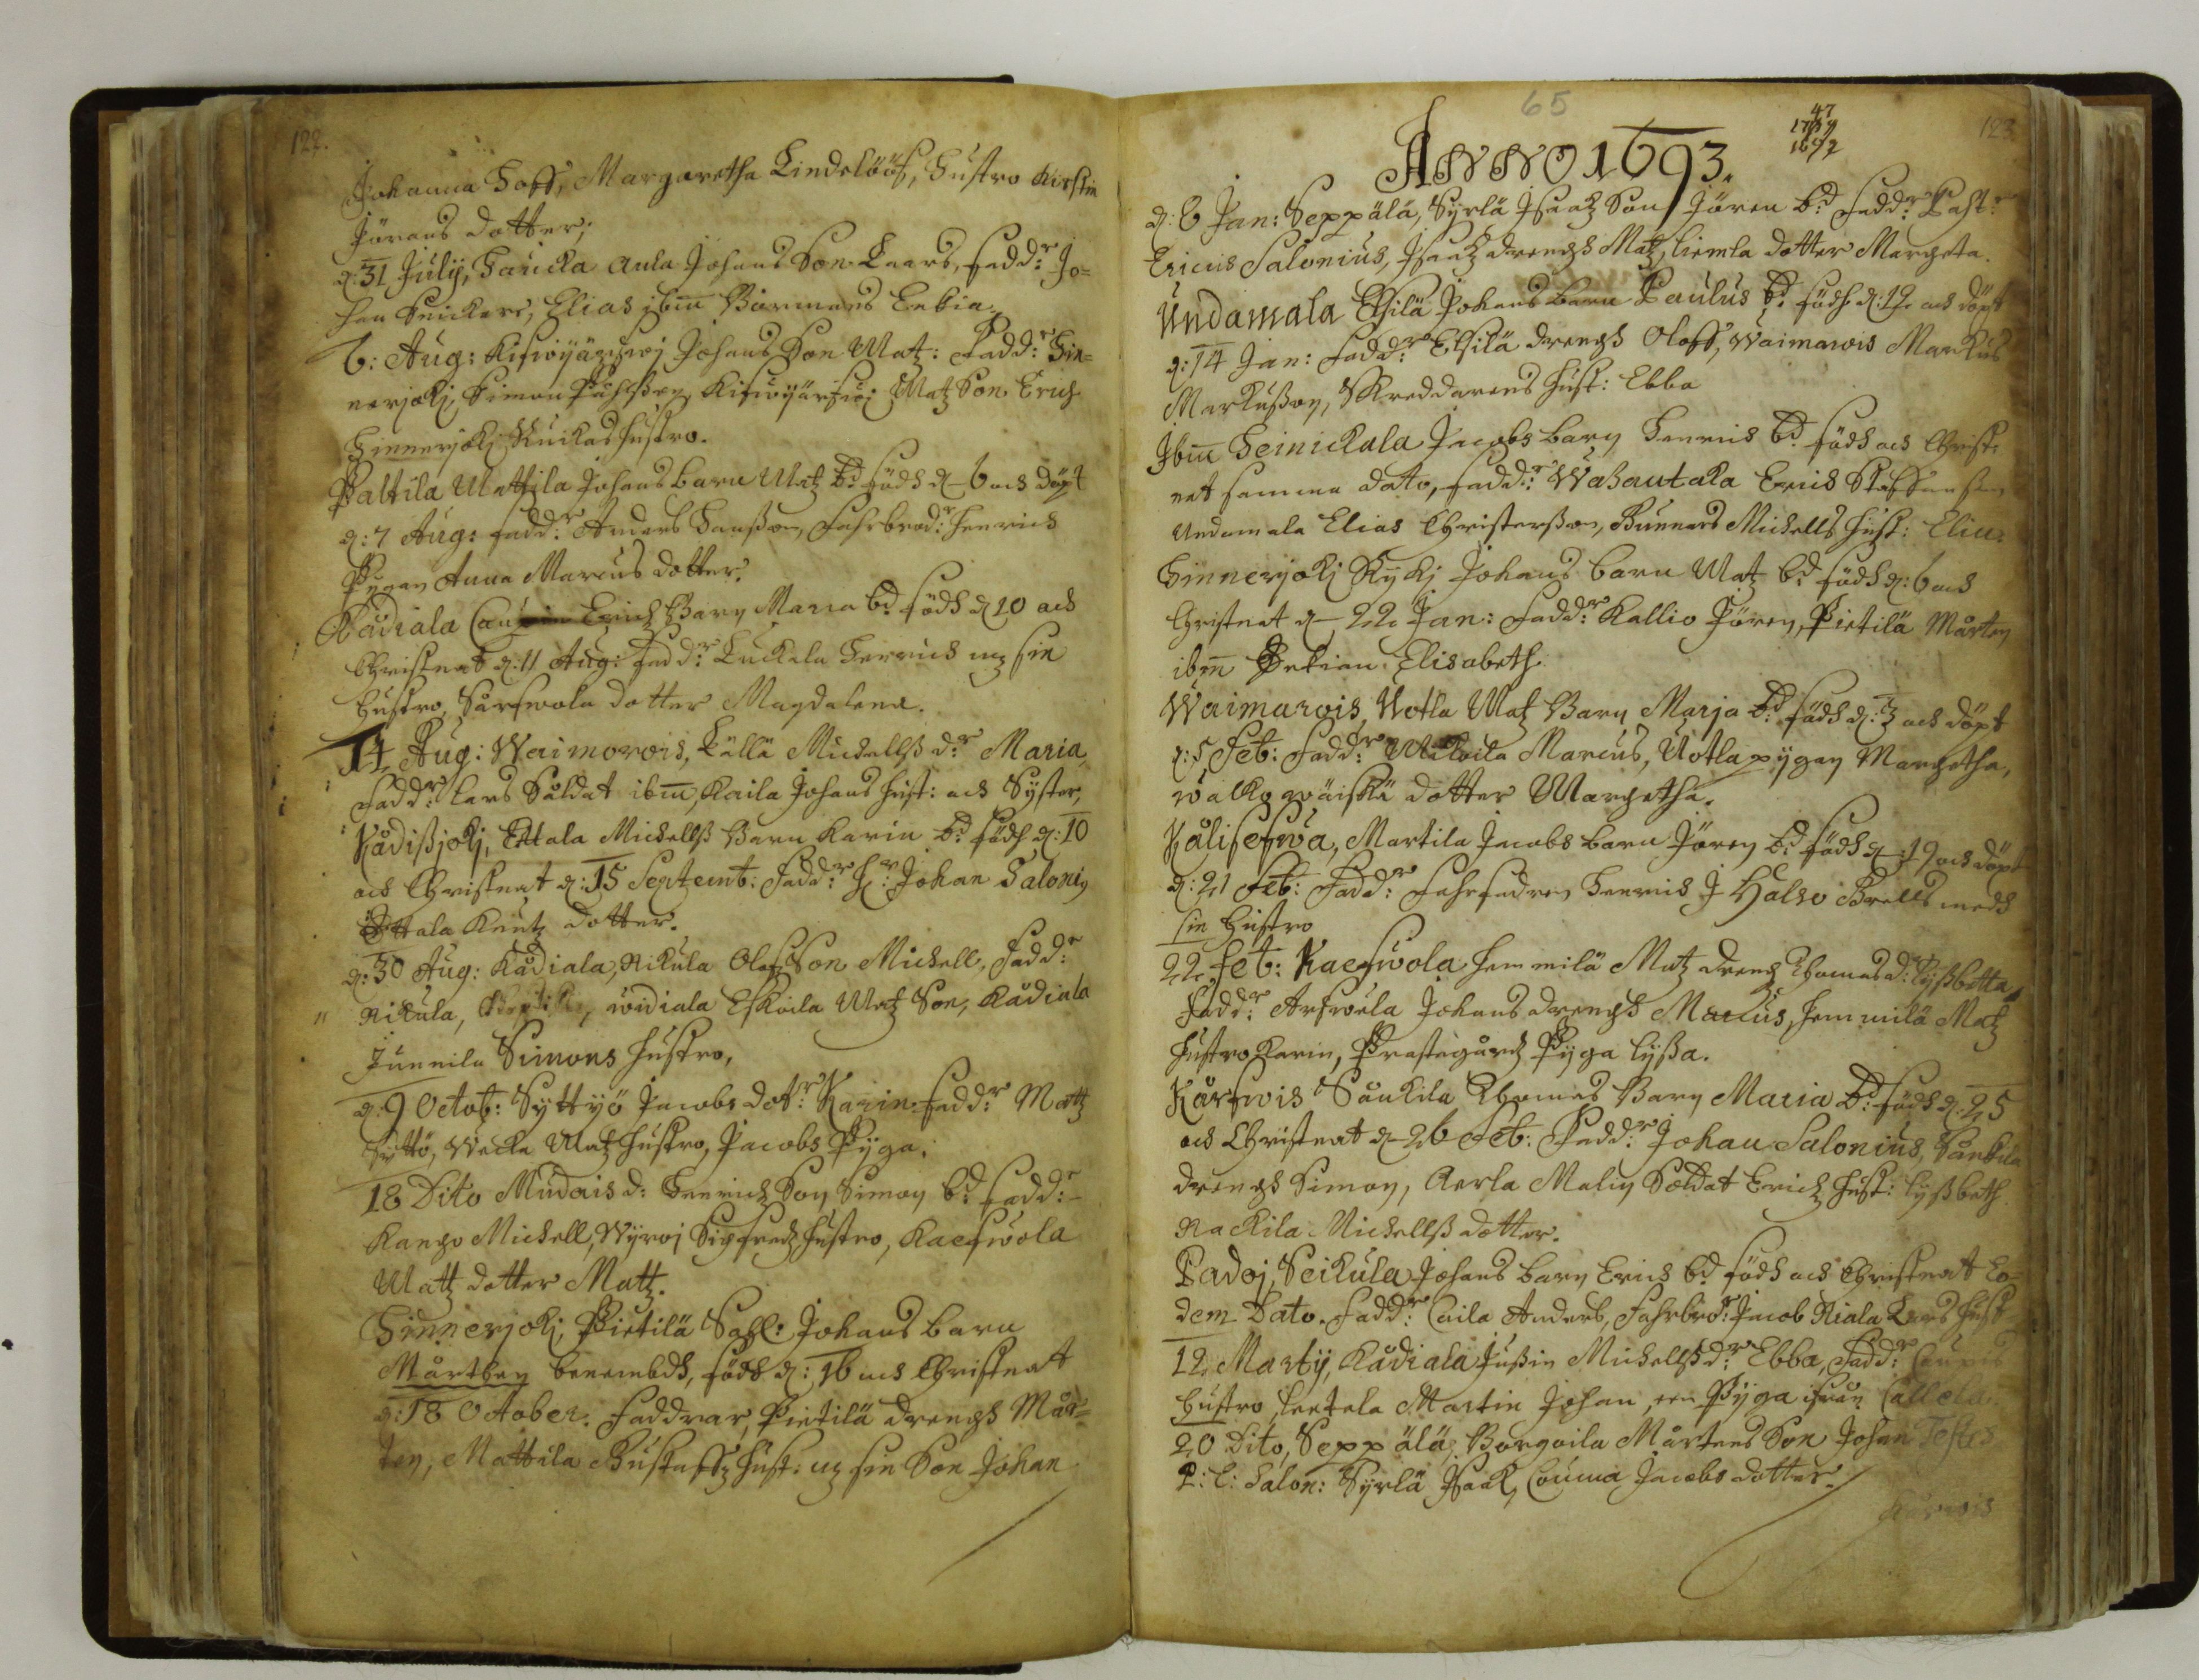 122.
Johanna Hoff, Margaretha Lindelööf, Hustro Kirstin
Jörans dotter;
d: 31 July, Haucka Anla Johans Son Laars, fadd:r Jo-
han Snickare, Elias ibm Börmans
6: Aug: Johans Son Matz: Fadd:r Hin-
nerjoki, Simon Matz Son Erich
Hinnerjoki Kuikas hustro.
Paltila Mattila Johans barn Matz bd födh d 6 och döpt
d: 7 Aug: fadd:r Anders Hansson, Fahrbrod:r Henrich
Pygan Anna Marcus dotter.
Kådiala Erich Barn Maria bd födh d 10 och
Christnat d: 11 Aug: fadd:r Luckala Henrich mz sin
hustro, Särfwola dotter Magdalena.
14 Aug: Waimorois, Källä Michellß d:r Maria,
Fadd:r Lars Såldat ibm, Kaila Johans hust: och Syster,
Kådißjoki, Ettala Michellß Barn Karin bd födh d: 10
och Christnat d: 15 Septemb: Fadd:r H:r Johan Saloni9
Ettala Knutz dotter.
d: 30 Aug: Kådiala, Rikula Olofz Son Michell, Fadd:r
Rikula, widiala Eskoila Matz Son, Kådiala
Junnila Simons hustro,
d: 9 Octob: Syttyö Jacobs dot:r Karin fadd:r Mattz
Syttö, Wecka Matz hustro, Jacobs Pyga.
18 Dito Mudais d: Henrich Son Simon bd fadd:r
Kango Michell, Wyroj Sigfredz hustro, Kaerfwola
Matz dotter Matz.
Hinnerjoki, Pietilä Sahl: Johans barn
Mårthen benembdh, födh d: 16 och Christnat
d: 18 October. Faddrar, Pietilä drengh Mår-
ten, Mattila Gustaffz hust: mz sin Son Johan
65
123
47
1739
1692
ANNO 1693.
d: 6 Jan: Seppälä, Syrlä Isaachz Son Jören bd fadd:r Past:r
Ericus Salonius, Isaachz drengh Matz, Liemla dotter Margeta.
Undamala Eßilä Johans barn Paulus bd födh d: 12 och döpt
d: 14 Jan: Fadd:r Eßilä drengh Oloff, Waimarois Markus
Markußon, Skreddarens hust: Ebba
Ibm Heinickala Jacobs barn Henrich bd födh och Christ-
nat samma dato, fadd:r Wahautaka Erich Staffansson
Undamala Elias Christersson, Bunnars Michells hust: Elin.
Hinnerjoki Kyki Johans barn Matz bd födh d: 6 och
Christnat d 22 Jan: Fadd:r Kallio Jören, Pietilä Mårten
ibm Elisabeth.
Waimarois, Uotla Matz Barn Marja bd födh d: 3 och döpt
d: 5 Feb: Fadd:r Marcus, Uotla pygan Margetha,
Walko wäiskä dotter Margetha.
Kålisefwa, Markila Jacobs barn Jören bd födh d: 19 och döpt
d: 21 Feb: Fadd:r Fahrfadren Henrich J Halso Brells medh
sin hustro
22 Feb: Kaerfwola Hemmilä Matz drengh Thomas d:r Lyßbetta,
Fadd:r Arfwela Johans drengh Marcus, Hemmilä Matz
hustro Karin, Prästegårdz Pyga Lyßa.
Kårfwis Säukila Thomas Barn Maria bd födh d: 25
och Christnat d 26 Feb: Fadd:r Johan Salonius, Säukila
drengh Simon, Aerla Malin Soldat Erich hust: Lyßbeth
Rackila Michellß dotter.
Padoj, Seikula Johans barn Erich bd födh och Christnat Eo-
dem Dato. Fadd:r Caila Anders, Fahrbrod:r Jacob Riala Lars hust
12 Martij, Kådiala Jußin Michellß d:r Ebba, Fadd:r Caupis
hustro, Leetela Martin Johan, een Pyga ifrån Callela
20 Dito, Seppälä, Borgoila Mårtens Son Johan Testes
P: E: Salon: Syrlä Isaak, Couma Jacobs dotter.
Kårwis